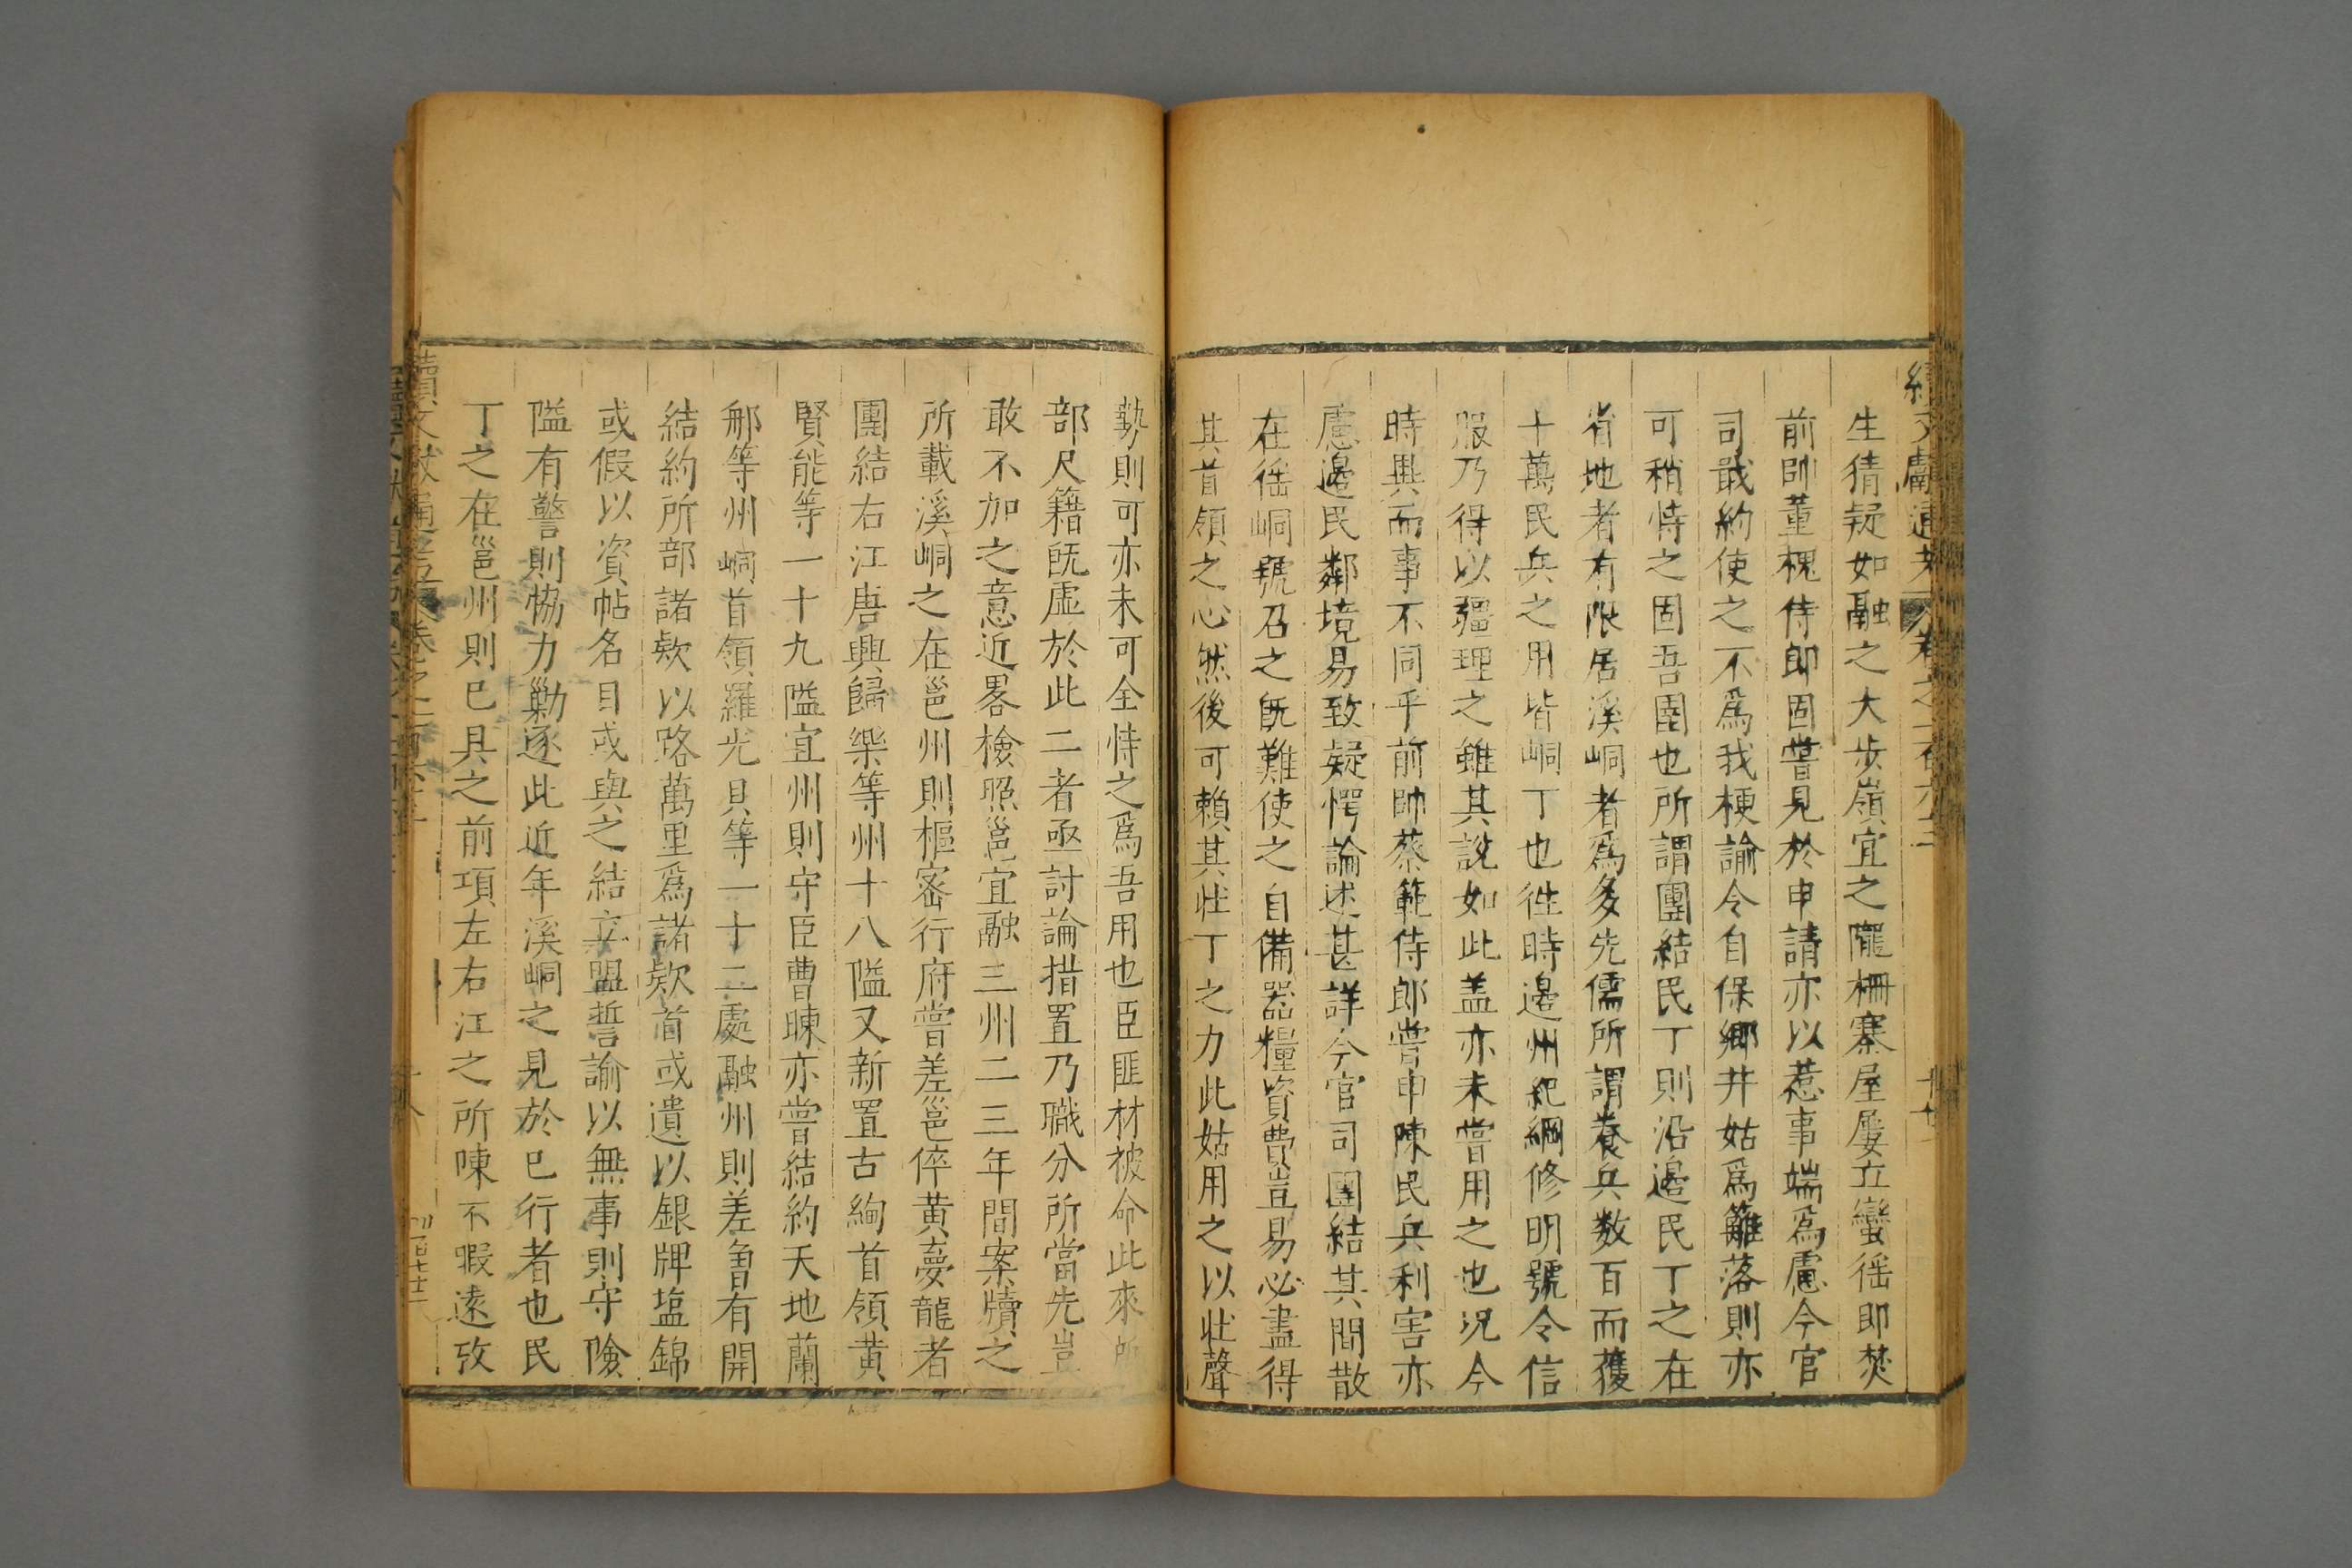 續文獻通考 卷之一百六十三
生猜疑如融之大步嶺宜之隴柵寨屋屢立蠻徭即焚
前帥董槐侍郎固嘗見於申請亦以惹事端爲慮今官
司戢約使之不爲我梗諭令自保鄉井姑爲籬落則亦
可稍恃之固吾圉也所謂團結民丁則沿邉民丁之在
省地者有限居溪峒者爲多先儒所謂養兵数百而獲
十萬民兵之用皆峒丁也徃時邉州紀綱修明號令信
服乃得以疆理之雖其說如此盖亦未嘗用之也况今
時異而事不同乎前帥蔡範侍郎嘗申陳民兵利害亦
慮邉民鄰境易致疑愕論述甚詳今官司團結其間散
在徭峒號召之旣難使之自備器糧資費豈易必盡得
其首領之心然後可賴其壮丁之力此姑用之以壮聲
勢則可亦未可全恃之爲吾用也臣匪材被命此來所
部尺籍旣虛於此二者亟討論措置乃職分所當先豈
敢不加之意近畧檢照邕宜融三州二三年間案牘之
所載溪峒之在邕州則樞宻行府嘗差邕倅黃夢龍者
團結右江唐興歸樂等州十八隘又新置古絢首領黃
賢能等一十九隘宜州則守臣曹暕亦嘗結約天地蘭
郍等州峒首領羅光貝等一十二處融州則差曾有開
結約所部諸欵以路萬里爲諸欵首或遺以銀牌塩錦
或假以資帖名目或與之結立盟誓諭以無事則守險
隘有警則恊力勦逐此近年溪峒之見於巳行者也民
丁之在邕州則巳具之前項左右江之所陳不暇逺攷
續文獻通考 卷之一百六十三